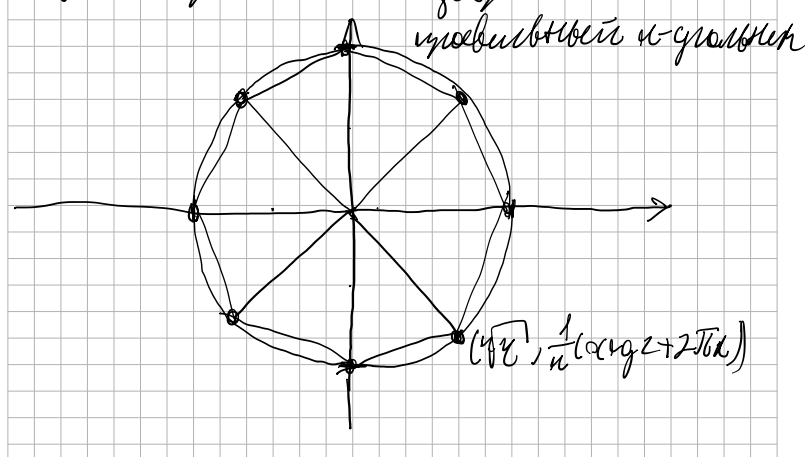 правильный n-угольник
(ⁿ√r, 1/n (arg z + 2πk))